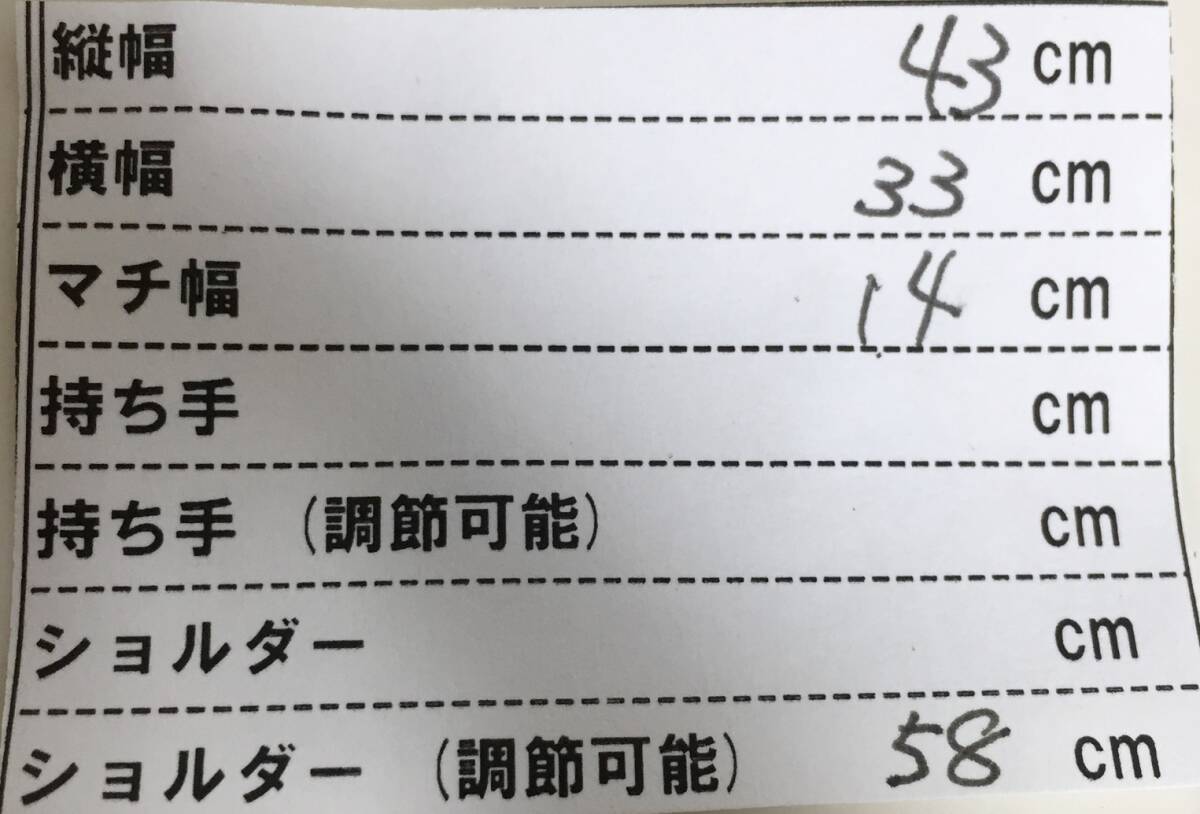 縦幅 43 cm
横幅 33 cm
マチ幅 14 cm
持ち手 cm
持ち手 (調節可能) cm
ショルダー cm
ショルダー (調節可能) 58 cm